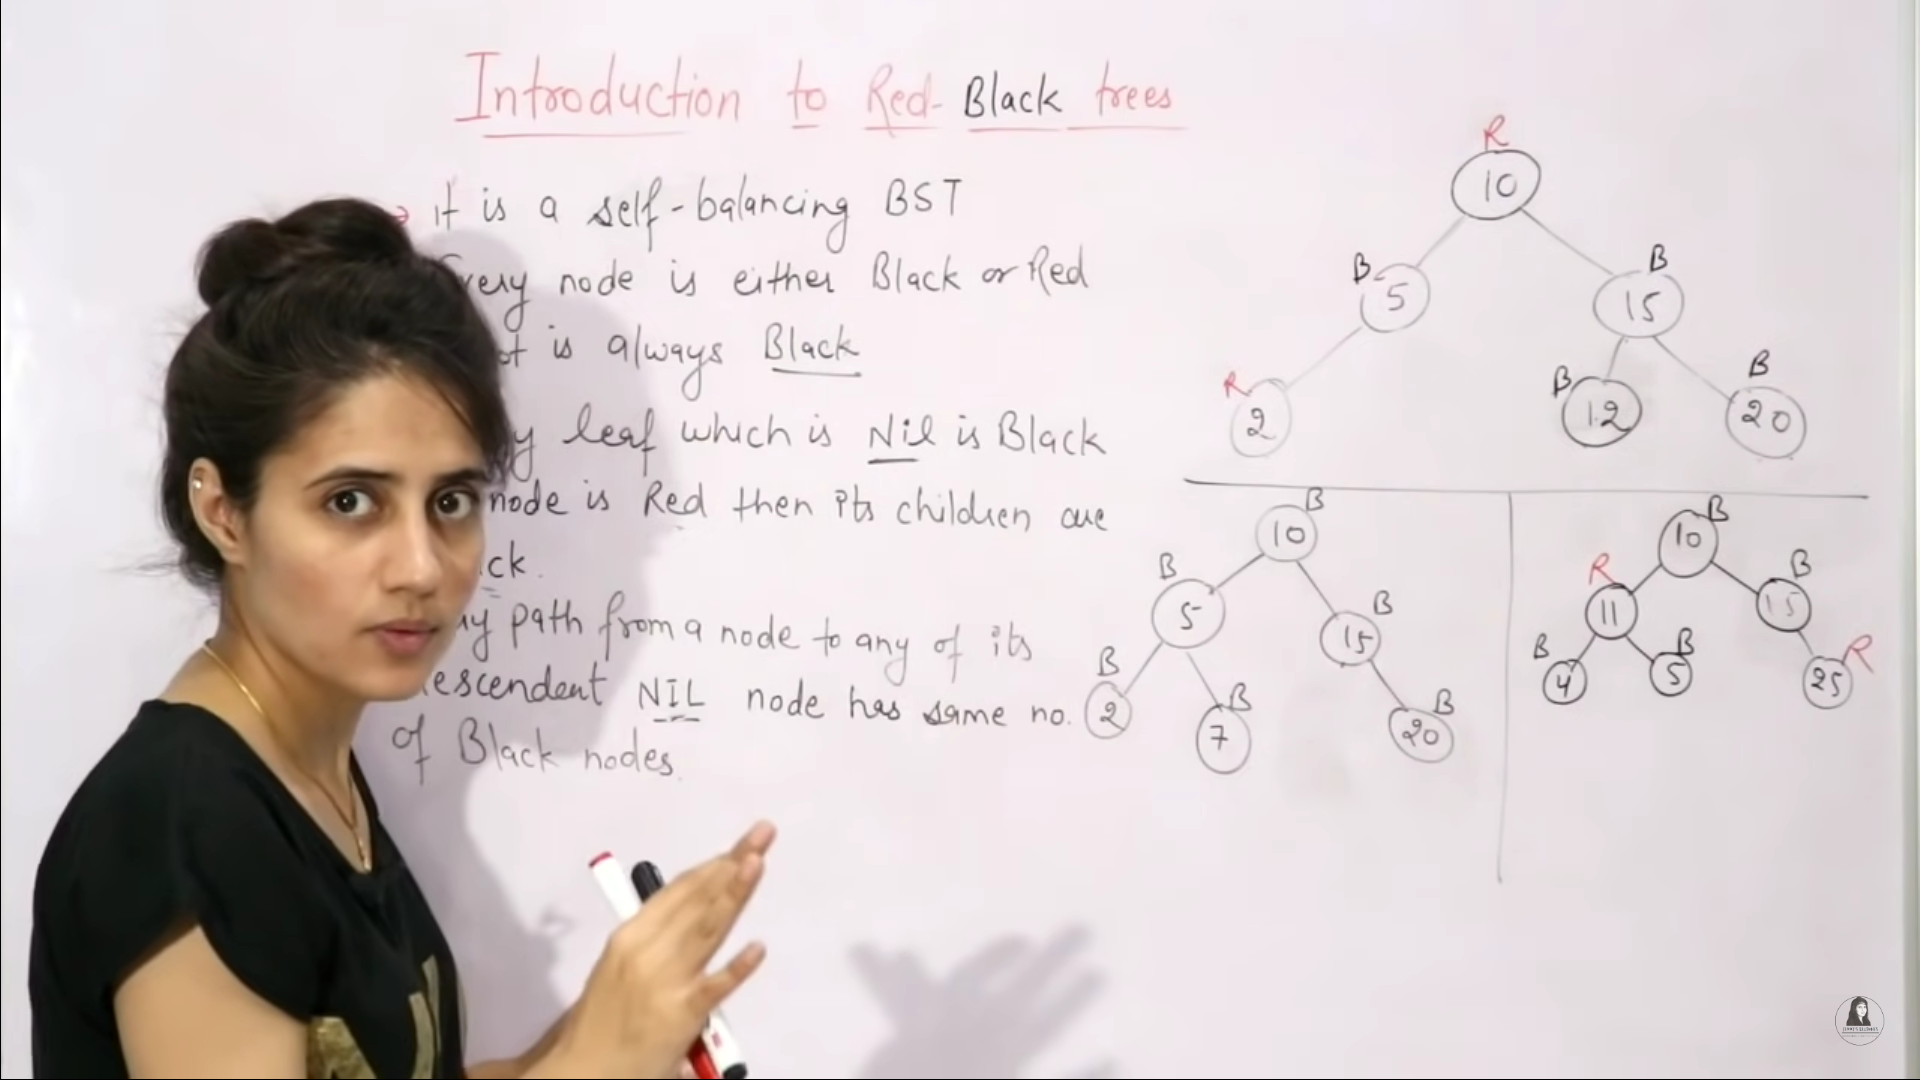 Introduction to Red-Black trees
it is a self-balancing BST
very node is either Black or Red
ot is always Black
y leaf which is Nil is Black
node is Red then its children are
ck.
ny path from a node to any of its
escendent NIL node has same no.
of Black nodes.
R
10
B
5
B
15
R
2
B
12
B
20
B
10
B
5
B
15
B
2
B
7
B
20
B
10
R
11
B
15
B
4
B
5
R
25